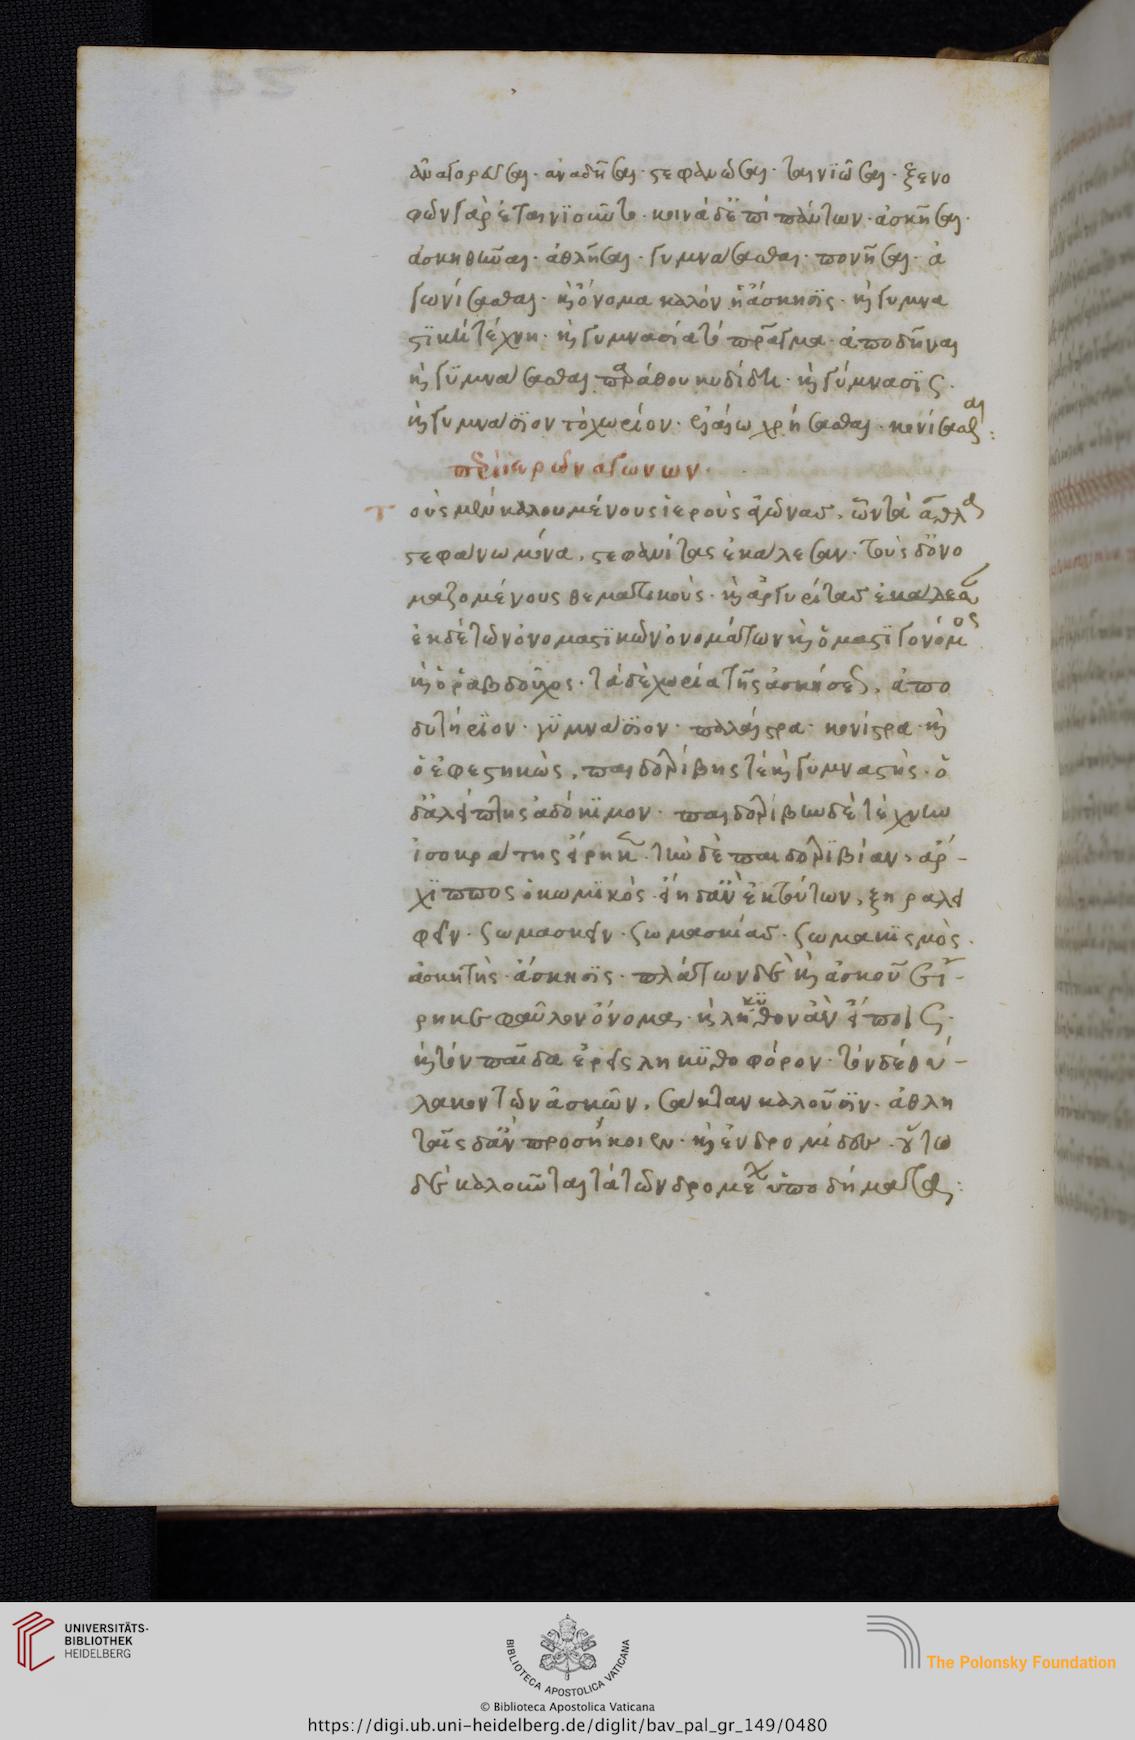 ἀναγορεῦσαι · ἀναδῆσαι · στεφανῶσαι · ταινιῶσαι · ξενο
φῶν γὰρ ἐταινιοῦντο · κοινὰ δ' ἐπὶ πάντων · ἀσκῆσαι ·
ἀσκηθῆναι · ἀθλῆσαι · γυμνάσασθαι · πονῆσαι · ἀ
γωνίσασθαι · καὶ ὄνομα καλὸν ἡ ἄσκησις · καὶ γυμνα
στικὴ τέχνη · καὶ γυμνασία τὸ πρᾶγμα · ἀποδῦναι
καὶ γυμνάσασθαι παρὰ θουκυδίδη · καὶ γύμνασις ·
καὶ γυμνάσιον τὸ χωρίον · ἐλαίω χρήσασθαι · κονίσασθαι :
περὶ ἱερῶν ἀγώνων ·
τοὺς μὲν καλουμένους ἱεροὺς ἀγῶνας, ὧν τὰ ἆθλα
στεφάνω μόνα, στεφανίτας ἐκάλεσαν · τοὺς δ' ὀνο
μαζομένους θεματικοὺς · καὶ ἀργυρίτας ἐκάλεσαν
ἐκ δὲ τῶν ὀνομαστικῶν ὀνομάτων καὶ ὁ μαστιγονόμος
καὶ ὁ ῥαβδοῦχος · τὰ δὲ χωρία τῆς ἀσκήσεως, ἀπο
δυτήριον · γυμνάσιον · παλαίστρα · κονίστρα · καὶ
ὁ ἐφεστηκὼς, παιδοτρίβης τὲ καὶ γυμναστὴς · ὁ
δ' ἀλείπτης ἀδόκιμον · παιδοτριβικὴν δὲ τέχνην
ἰσοκράτης εἴρηκεν · τὴν δὲ παιδοτριβίαν, ἀρ-
χιππος ὁ κωμικὸς · εἴη δ' ἂν ἐκ τούτων, ξηραλοι
φεῖν · σωμασκεῖν · σωμασκίας · σωμακισμὸς ·
ἀσκητὴς · ἄσκησις · πλάτων δὲ καὶ ἀσκοῦσιν εἴ-
ρηκε φαῦλον ὄνομα · καὶ λήκυθον ἂν εἴποις ·
καὶ τὸν παῖδα ἐρεῖς ληκυθοφόρον · τὸν δὲ θύ-
λακον τῶν ἀσκῶν, σάκταν καλοῦσιν · ἀθλη
ταῖς δ' ἂν προσήκοιεν · καὶ ἐνδρομίδες · οὕτω
δὲ καλοῦνται τὰ τῶν δρομέων ὑποδήματα :
UNIVERSITÄTS-
BIBLIOTHEK
HEIDELBERG
BIBLIOTECA APOSTOLICA VATICANA
The Polonsky Foundation
© Biblioteca Apostolica Vaticana
https://digi.ub.uni-heidelberg.de/diglit/bav_pal_gr_149/0480